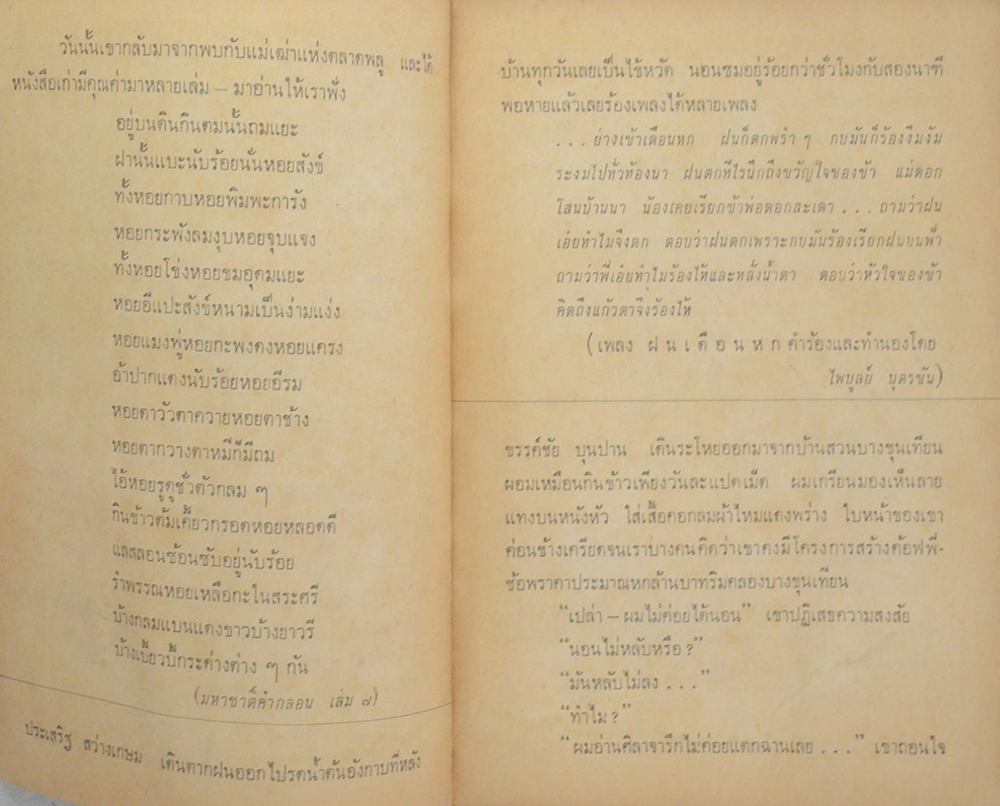 วันนั้นเขากลับมาจากพบกับแม่เฒ่าแห่งตลาดพลู และได้
หนังสือเก่ามีคุณค่ามาหลายเล่ม — มาอ่านให้เราฟัง
อยู่บนดินกินตมนั้นถมแยะ
ฝานั้นแบะนับร้อยนั่นหอยสังข์
ทั้งหอยกาบหอยพิมพะการัง
หอยกระพังลมงุบหอยจุบแจง
ทั้งหอยโข่งหอยขมอุดมแยะ
หอยอีแปะสังข์หนามเป็นง่ามแง่ง
หอยแมงพู่หอยกะพงดงหอยแครง
อ้าปากแดงนับร้อยหอยอีรม
หอยตาวัวตาควายหอยตาช้าง
หอยตากวางตาหมีก็มีถม
ไอ้หอยรูดูชั่วตัวกลม ๆ
กินข้าวต้มเคี้ยวกรอดหอยหลอดดี
แลสลอนซ้อนซับอยู่นับร้อย
รำพรรณหอยเหลือกะในสระศรี
บ้างกลมแบนแดงขาวบ้างยาวรี
บ้างเบี้ยวบี้กระด่างต่าง ๆ กัน
(มหาชาติคำกลอน เล่ม ๗)
ประเสริฐ สว่างเกษม เดินตากฝนออกไปรดน้ำต้นอังกาบที่หลัง
บ้านทุกวันเลยเป็นไข้หวัด นอนซมอยู่ร้อยกว่าชั่วโมงกับสองนาฑี
พอหายแล้วเลยร้องเพลงได้หลายเพลง
. . . ย่างเข้าเดือนหก ฝนก็ตกพรำ ๆ กบมันก็ร้องงึมงำ
ระงมไปทั่วท้องนา ฝนตกทีไรนึกถึงขวัญใจของข้า แม่ดอก
โสนบ้านนา น้องเคยเรียกข้าพ่อดอกสะเดา . . . ถามว่าฝน
เอ๋ยทำไมจึงตก ตอบว่าฝนตกเพราะกบมันร้องเรียกฝนบนฟ้า
ถามว่าพี่เอ๋ยทำไมร้องไห้และหลั่งน้ำตา ตอบว่าหัวใจของข้า
คิดถึงแก้วตาจึงร้องไห้
(เพลง ฝ น เ ดื อ น ห ก คำร้องและทำนองโดย
ไพบูลย์ บุตรขัน)
ขรรค์ชัย บุนปาน เดินระโหยออกมาจากบ้านสวนบางขุนเทียน
ผอมเหมือนกินข้าวเพียงวันละแปดเม็ด ผมเกรียนมองเห็นลาย
แทงบนหนังหัว ใส่เสื้อคอกลมผ้าไหมแดงพร่าง ใบหน้าของเขา
ค่อนข้างเครียดจนเราบางคนคิดว่าเขาคงมีโครงการสร้างค้อฟฟี่-
ช้อพราคาประมาณหกล้านบาทริมคลองบางขุนเทียน
“เปล่า — ผมไม่ค่อยได้นอน” เขาปฏิเสธความสงสัย
“นอนไม่หลับหรือ ?”
“มันหลับไม่ลง . . .”
“ทำไม ?”
“ผมอ่านศิลาจารึกไม่ค่อยแตกฉานเลย . . .” เขาถอนใจ